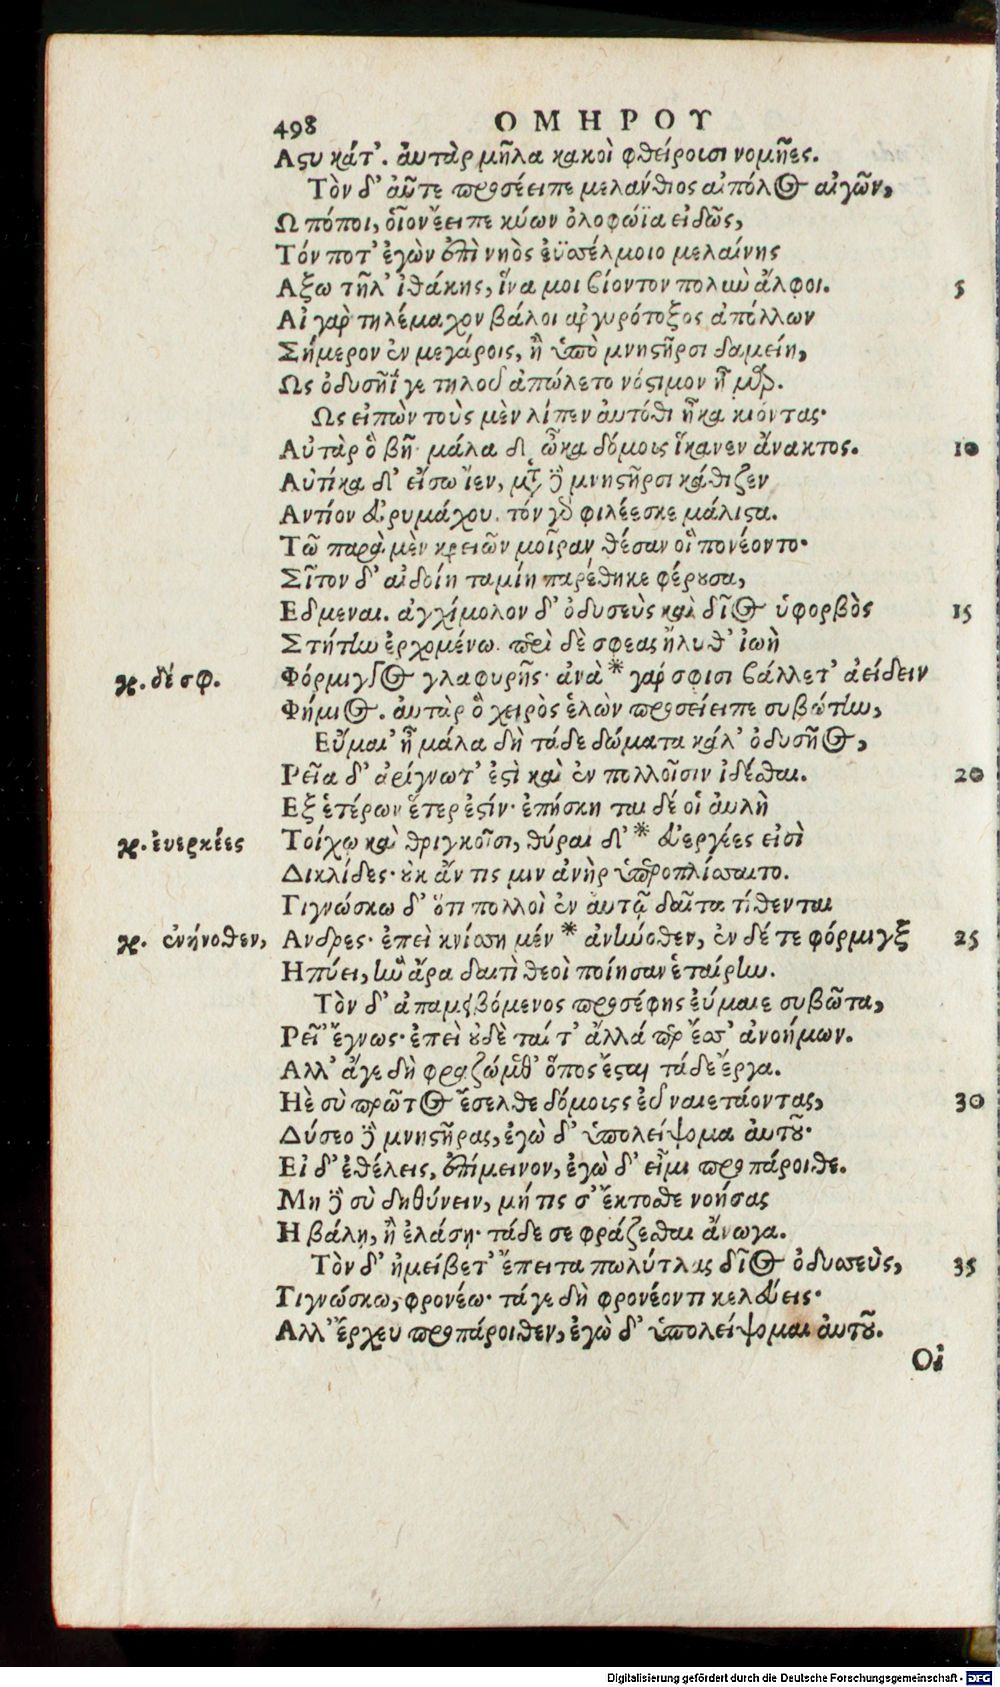 498 ΟΜΗΡΟΥ
Αϛυ κάτ᾽. ἀυτὰρ μῆλα κακοὶ φθείρουσι νομῆες.
Τὸν δ᾽ ἀῦτε προσέειπε μελάνθιος αἰπόλος αἰγῶν,
Ω πόποι, δῖον ἔειπε κύων ὀλοφώϊα εἰδῶς,
Τόν ποτ᾽ ἐγὼν ἐπὶ νηὸς ἐϋσσέλμοιο μελαίνης
Αξω τῆλ᾽ ἰθάκης, ἵνα μοι βίοντον πολιὼ ἄλφοι. 5
Αἰ γαρ τηλέμαχον βάλοι αργυρότοξος ἀπόλλων
Σήμερον ἐν μεγάροις, ἢ ὑπὸ μνηϛῆρσι δαμείη,
Ως ὀδυσῆΐ γε τηλοῦ ἀπώλετο νόϛιμον ἦμαρ.
Ως εἰπὼν τοὺς μὲν λίπεν ἀυτόθι ἦκα κιόντας·
Αὐτὰρ ὃ βῆ· μάλα δ᾽ ὦκα δόμοις ἵκανεν ἄνακτος. 10
Αὐτίκα δ᾽ εἴσω ἴεν, μετὰ δὲ μνηϛῆρσι κάθιζεν
Αντίον ἐυρυμάχου. τόν γὰρ φιλέεσκε μάλιϛα.
Τῶ παρὰ μὲν κρειῶν μοῖραν θέσαν οἳ πονέοντο·
Σῖτον δ᾽ αἰδοίη ταμίη παρέθηκε φέρουσα,
Εδμεναι. ἀγχίμολον δ᾽ ὀδυσεὺς καὶ δῖος ὑφορβὸς 15
Στήτην ἐρχομένω. περὶ δὲ σφεας ἤλυθ᾽ ἰωὴ
γρ. δέ σφ. Φόρμιγγος γλαφυρῆς· ἀνὰ * γαρ σφισι βάλλετ᾽ ἀείδειν
Φήμιος. ἀυτὰρ ὃ χειρὸς ἑλὼν προσείειπε συβώτην,
Εὔμαι᾽ ἦ μάλα δὴ τάδε δώματα κάλ᾽ ὀδυσῆος,
Ρεῖα δ᾽ ἀρίγνωτ᾽ ἐϛὶ καὶ ἐν πολλοῖσιν ἰδέσθαι. 20
Εξ ἑτέρων ἕτερ ἐϛίν· ἐπήσκηται δέ οἱ ἀυλὴ
γρ. ἐυερκέες Τοίχῳ καὶ θριγκοῖσι, θύραι δ᾽ * ἐυεργέες εἰσὶ
Δικλίδες· οὐκ ἄν τις μιν ἀνὴρ ὑπεροπλίσσαιτο.
Γιγνώσκω δ᾽ ὅτι πολλοὶ ἐν ἀυτῷ δαῖτα τίθενται
γρ. ἐνήνοθεν, Ανδρες· ἐπεὶ κνίσση μέν * ἀνήνοθεν, ἐν δέ τε φόρμιγξ 25
Ηπύει, ἣν ἄρα δαιτὶ θεοὶ ποίησαν ἑταίρην.
Τὸν δ᾽ ἀπαμειβόμενος προσέφης ἐύμαιε συβῶτα,
Ρεῖ᾽ ἔγνως· ἐπεὶ οὐδὲ ταί τ᾽ ἄλλά περ ἔσσ᾽ ἀνοήμων.
Αλλ᾽ ἄγε δὴ φραζώμεθ᾽ ὅπος ἔϛαι τάδε ἔργα.
Ηὲ σὺ πρῶτος ἔσελθε δόμοιςς ἐῦ ναιετάοντας, 30
Δύσεο δὲ μνηϛῆρας, ἐγὼ δ᾽ ὑπολείψομα ἀυτοῦ·
Εἰ δ᾽ ἐθέλεις, ἐπίμεινον, ἐγὼ δ᾽ εἶμι προπάροιθε.
Μη δὲ σὺ δηθύνειν, μή τις σ᾽ ἔκτοσθε νοήσας
Η βάλῃ, ἢ ἐλάσῃ· τάδε σε φράζεσθαι ἄνωγα.
Τὸν δ᾽ ἠμείβετ᾽ ἔπειτα πολύτλας δῖος ὀδυσσεὺς, 35
Γιγνώσκω, φρονέω· τάγε δὴ φρονέοντι κελεύεις·
Αλλ᾽ ἔρχευ προπάροιθεν, ἐγὼ δ᾽ ὑπολείψομαι ἀυτοῦ.
Οὐ
Digitalisierung gefördert durch die Deutsche Forschungsgemeinschaft - DFG